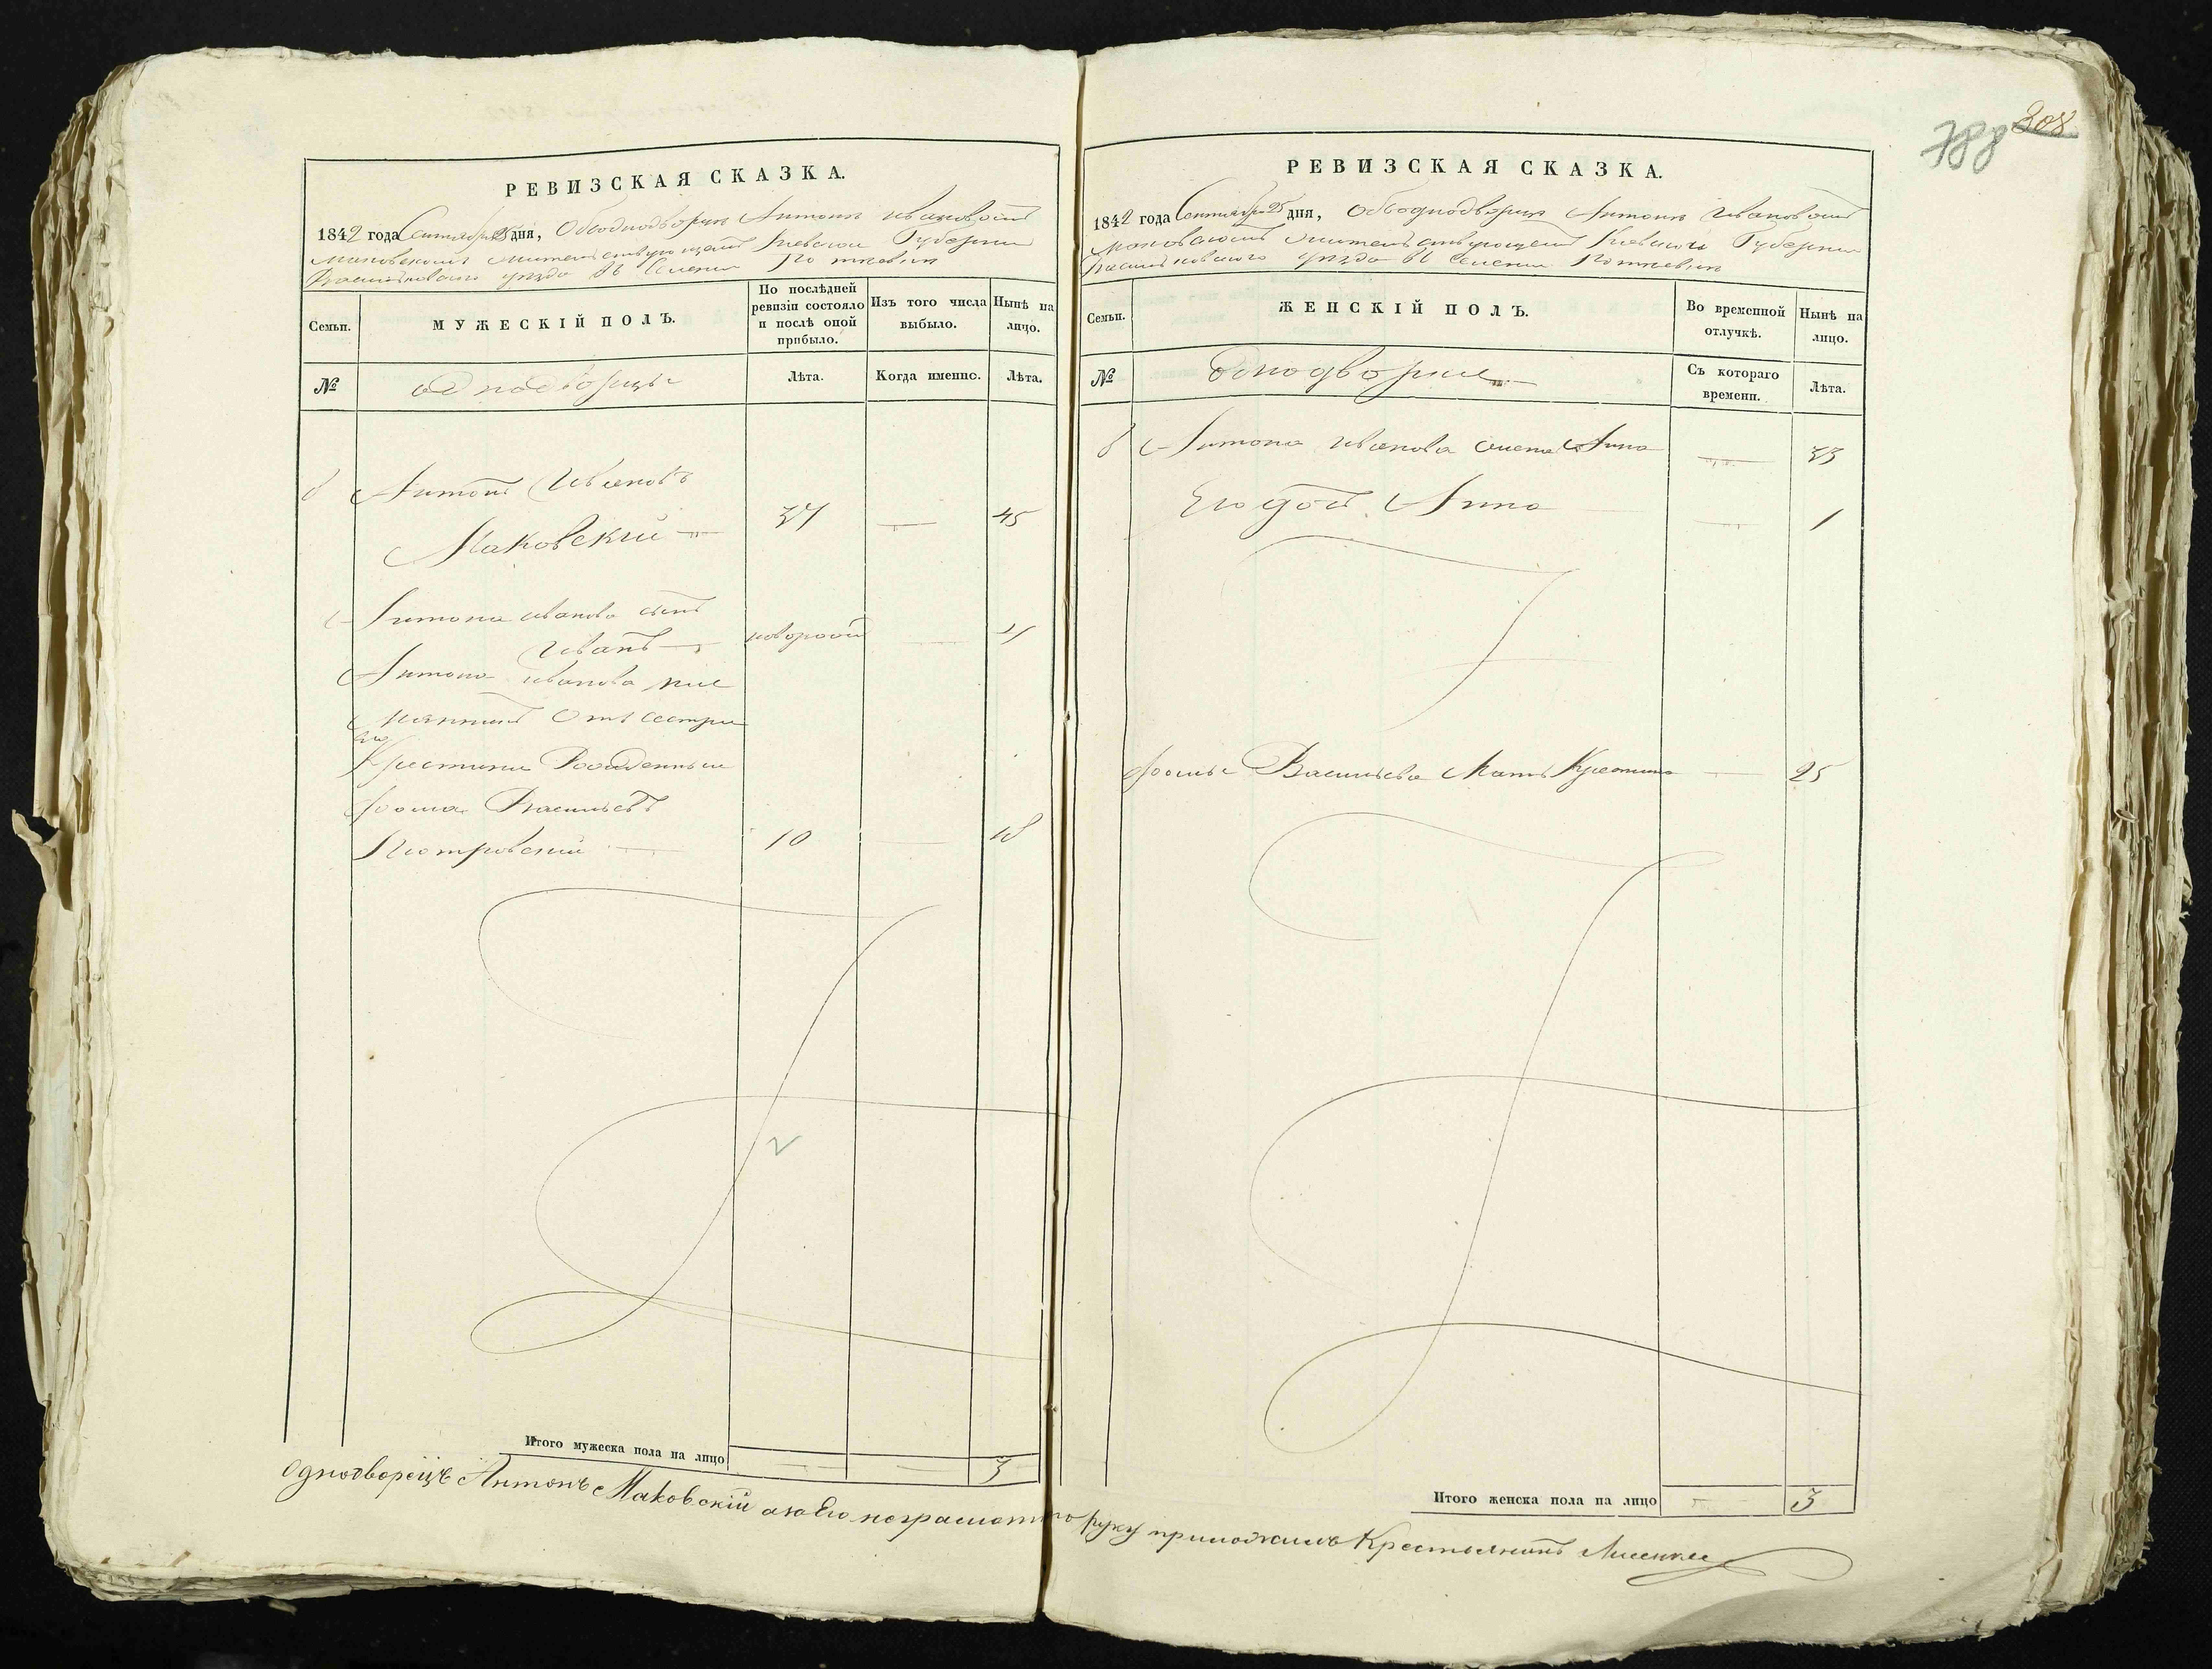 788 308
РЕВИЗСКАЯ СКАЗКА.
1842 года Сентября 25 дня, Объ однодворце Антоне Ивановом
Маковском жительствующем Киевской Губернии
Васильковского уезда въ Селении
Семьи.
МУЖЕСКІЙ ПОЛЪ.
По послѣдней
ревизіи состояло
и послѣ оной
прибыло.
Изъ того числа
выбыло.
Нынѣ на
лицо.
№
однодворцы
Лѣта.
Когда именно.
Лѣта.
Антонъ Ивановъ
Маковский 45
Антона иванова сынъ
Иванъ
Антона иванова пле
мянникъ Отъ сестри
его
Крестини Рожденный
Фома Васильевъ
Пиотровский 10 18
Итого мужеска пола на лицо 3
РЕВИЗСКАЯ СКАЗКА.
1842 года Сентября 25 дня, Объ однодворце Антоне Ивановом
Маковском жительствующем Киевской Губернии
Васильковского уезда въ Селении
Семьи.
ЖЕНСКІЙ ПОЛЪ.
Во временной
отлучкѣ.
Нынѣ на
лицо.
№
Однодворки
Съ котораго
времени.
Лѣта.
Антона Иванова жена Анна 33
Его дочь Анна 1
Фомы Васильева Мать Крестина 25
Итого женска пола на лицо 3
Однодворецъ Антонъ Маковскій а за Его неграмотно руку приложилъ Крестьянинъ